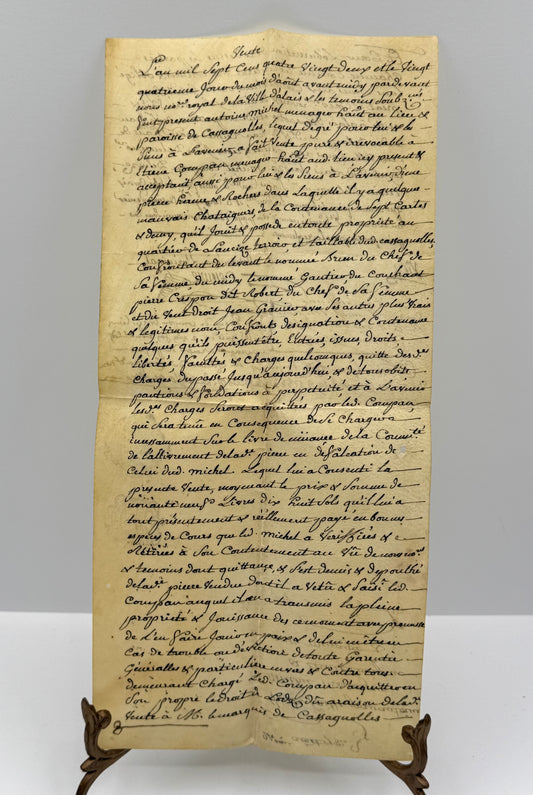 Vente
L'an mil Sept Cens quatre Vingt deux et le Vingt
quatrieme Jour du mois d'août avant midy pardevant
nous no.re royal de la Ville d'alais & les temoins Soubz.nés
fut present antoine michel menager haut au lieu &
paroisse de Cassagnolles, lequel de gré pour lui & les
Siens à L'avenir a fait Vente pure & irrevocable a
Etiene Compan menager haut aud. lieu icy present &
acceptant, aussi pour lui & les Siens à L'avenir, d'une
piece herme & Rochers dans Laquelle il y a quelques
mauvais Chataigners de la Contenance de Sept Cartes
& demy, qu'il Jouit & possede en toute proprieté au
quartier de terroir et taillable dud. Cassagnolles
Confrontant du levant le nommé Brun du Chef de
Sa femme, du midy le nommé Gautier du Couchant
pierre Crespon dit Robert du Chef de Sa femme
et du Vent droit Jean Granier avec Ses autres plus Vrais
& legitimes Confronts designation & Contenance
quelques qu'ils puissent être, Entrées issues, droits
libertés, facultés & Charges quelconques, quitte des d.es
Charges du passé Jusqu'aujourd'hui, & de tous obits
pentions & fondations à perpetuité et à L'avenir
les d.es Charges Seront acquittées par led. Compan,
qui Sera tenu en Consequence de Se Charger
incessamment Sur le livre de muance de la Commu.té
de l'allivrement de lad.e piece en defalcation de
Celui dud. michel. Lequel lui a Consenti la
presente Vente, moyenant le prix & Somme de
nonante neuf Livres dix huit Sols qu'il lui a
tout presentement & réellement payé en bonnes
especes de Cours que led. michel a Veriffiées &
Retirées à Son Contentement au Vû de nous no.re
& temoins dont quittance, & S'est demis & depouillé
de lad.e piece Vendue dont il a Vetû & Saisi led.
Compan auquel il en a transmis la pleine
proprieté & Jouissance des ce moment avec promesse
de L'en faire Jouir en paix & de lui être en
Cas de trouble ou d'éviction de toute Garentie
Généralle & particuliere envers & Contre tous
demeurant Chargé Led. Compan d'acquitter en
Son propre le droit de Lods dû a raison de lad.e
Vente à M. le marquis de Cassagnolles